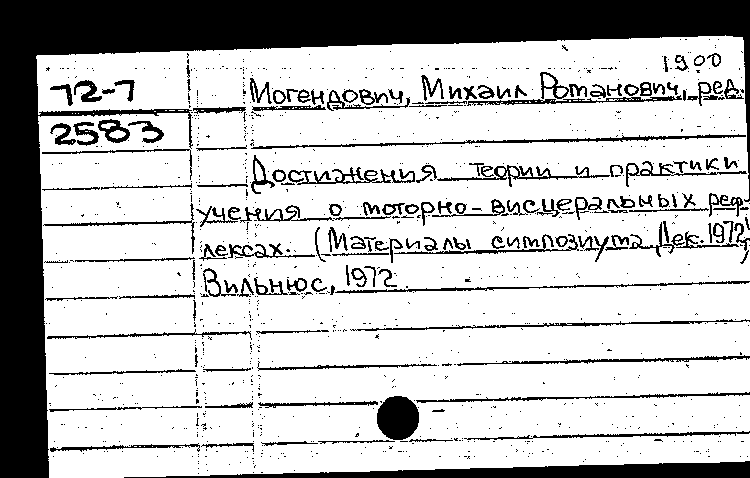 1900
72-7 Могендович, Михаил Романович, ред.
2583
Достижения теории и практики
учения о моторно-висцеральных реф-
лексах. (Материалы симпозиума Дек. 1972)
Вильнюс, 1972.